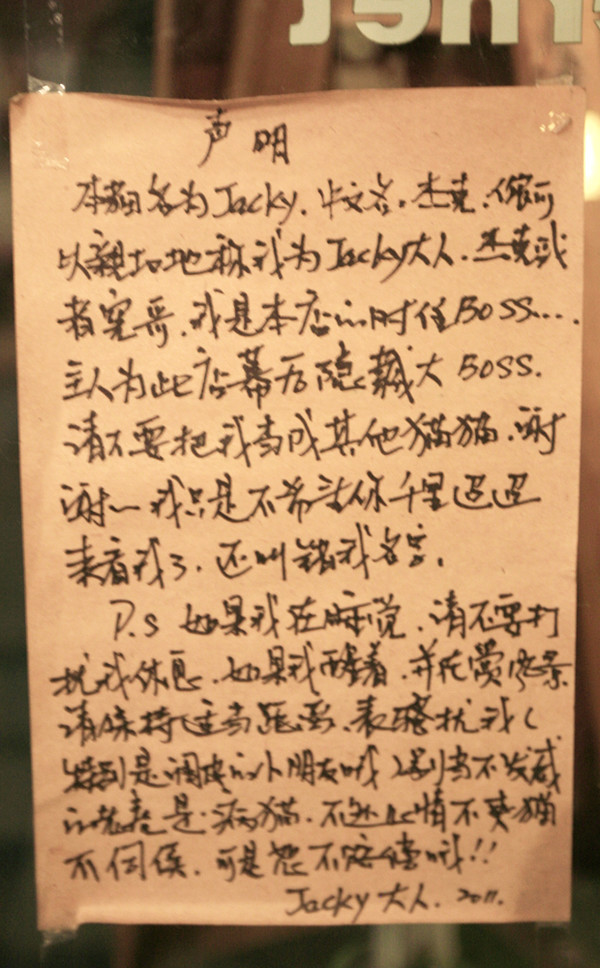 声明
本猫名为Jacky.中文名.杰克.你可
以亲切地称我为Jacky大人.杰克或
者宝哥.我是本店的时任BOSS....
主人为此店幕后隐藏大BOSS.
请不要把我当成其他猫猫.谢
谢~我只是不希望你千里迢迢
来看我了.还叫错我名字.
P.S 如果我在睡觉.请不要打
扰我休息.如果我醒着.并在赏风景
请保持适当距离.表骚扰我(
特别是调皮的小朋友哦)别当不发威
的老虎是病猫.不过此情不关猫
不伺候.可是恕不赔偿哦!!
Jacky大人.2011.